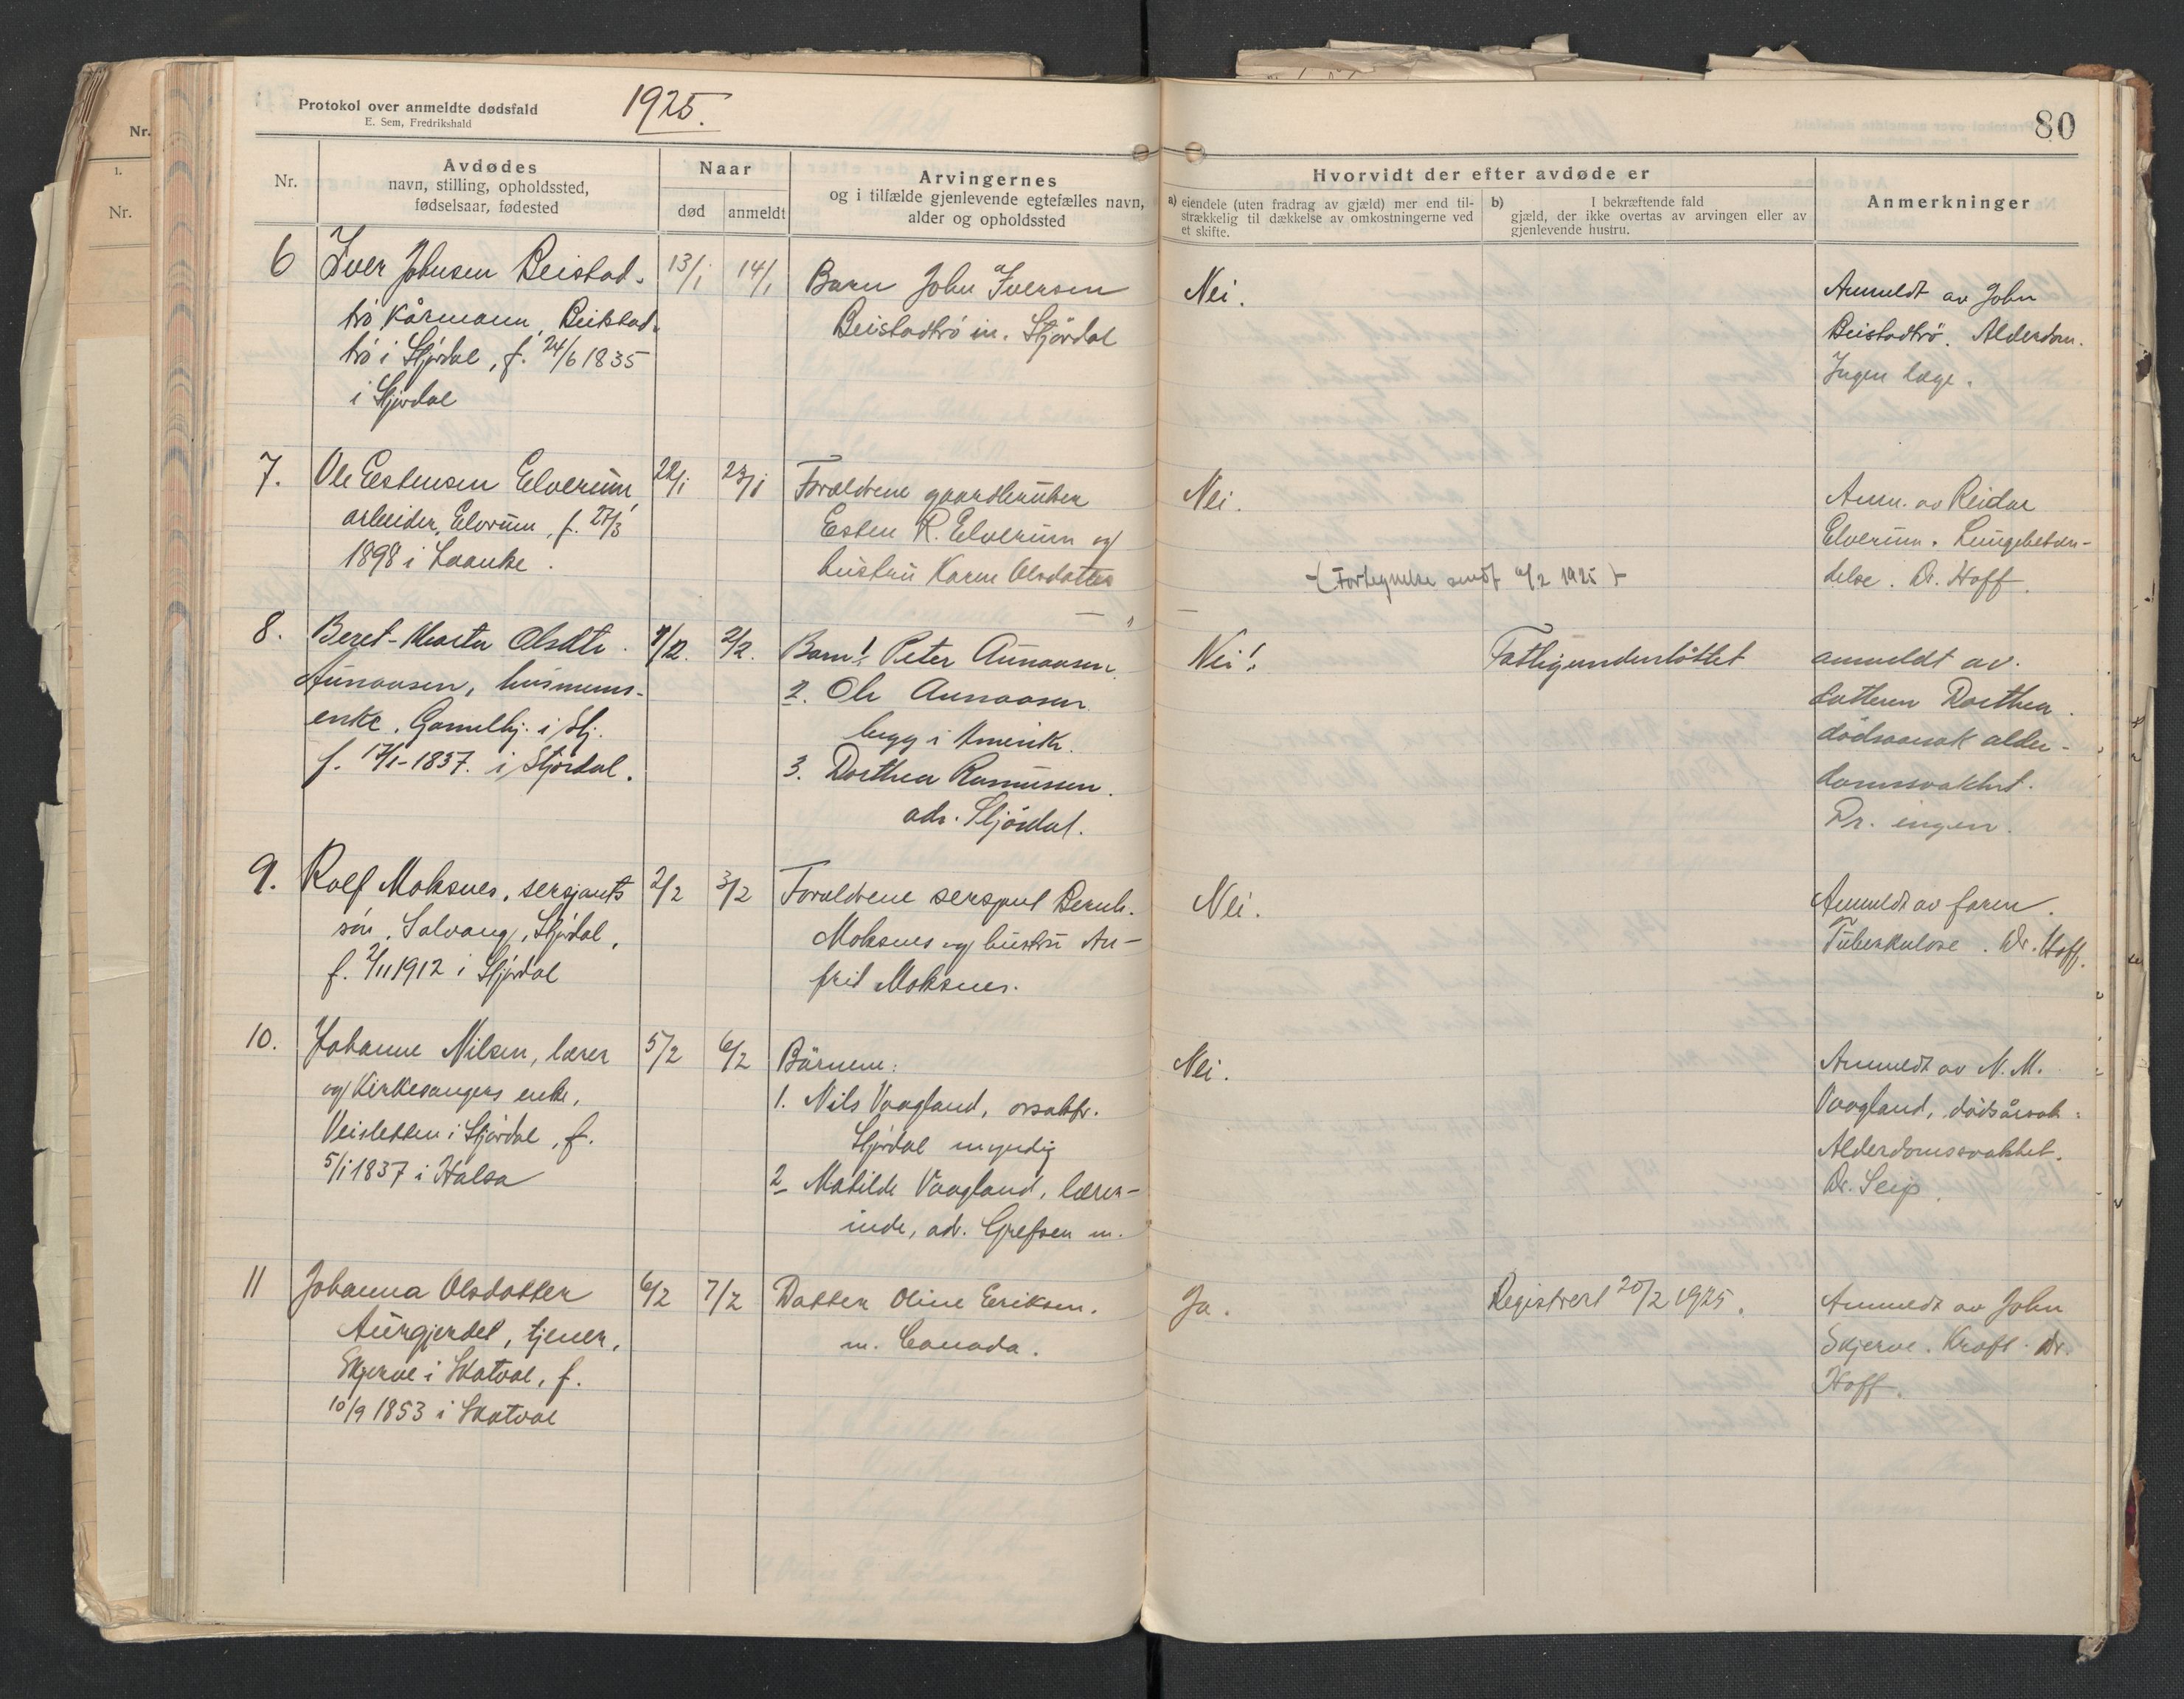 Protokol over anmeldte dødsfald
E. Sem, Fredrikshald
1925.
80
Nr.
1.
Nr.
Nr.
Avdødes
navn, stilling, opholdssted,
fødselsaar, fødested
Naar
død
anmeldt
Arvingernes
og i tilfælde gjenlevende egtefælles navn,
alder og opholdssted
Hvorvidt der efter avdøde er
a) eiendele (uten fradrag av gjæld) mer end til-
strækkelig til dækkelse av omkostningerne ved
et skifte.
b) I bekræftende fald
gjæld, der ikke overtas av arvingen eller av
gjenlevende hustru.
Anmerkninger
6
Iver Johnsen Beistad-
trö kårmann, Beistad-
trö i Stjördal, f. 24/6 1835
i Stjördal
13/1
14/1
Barn John Iversen
Beistadtrö m. Stjördal
Nei.
Anmeldt av John
Beistadtrö. Alderdom.
Ingen læge.
7.
Ole Estensen Elverum
arbeider, Elverum, f. 27/3
1898 i Laanke.
22/1
23/1
Forældrene gaardbruker
Esten R. Elverum og
hustru Karen Olsdatter
Nei.
(Fortegnelse sendt 6/2 1925)
Anm. av Reidar
Elverum. Lungebetæn-
delse. Dr. Hoff.
8.
Beret-Marta Olsdtr.
Aunaasen, husmans-
enke. Gamelhj. i Stj.
f. 17/1-1837. i Stjördal.
2/2.
Barn 1. Peter Aunaasen.
2. Ole Aunaasen
begg i Amerika.
3. Dorthea Rasmussen.
adr. Stjördal.
Nei!
Fattigunderstöttet
anmeldt av
datteren Dorthea.
dödsaarsak alder-
domssvakhet.
Dr. ingen.
9.
Rolf Moksnes, sersjants
sön, Solvang, Stjördal,
f. 2/11 1912 i Stjördal
2/2
3/2
Forældrene sersjant Bernh.
Moksnes og hustru An-
frid Moksnes.
Nei.
Anmeldt av faren.
Tuberkulose. Dr. Hoff.
10.
Johanne Nilsen, lærer
og kirkesangers enke,
Veisletten i Stjördal, f.
5/1 1837 i Halsa
5/2
6/2
Bärnene:
1. Nils Vaagland,
Stjördal myndig
2. Matilde Vaagland, lærer-
inde, adr. Grefsen m.
Nei.
Anmeldt av N. M.
Vaagland, dödsårsak:
Alderdomssvakhet.
Dr. Seip.
11
Johanna Olsdatter
Aurgjerdet, tjener,
Skjerve i Skatval, f.
10/9 1853 i Skatval
6/2
7/2
Datter Oline Eriksen.
m. Canada.
Ja.
Registrert 20/2 1925.
Anmeldt av John
Skjerve. Kræft. Dr.
Hoff.